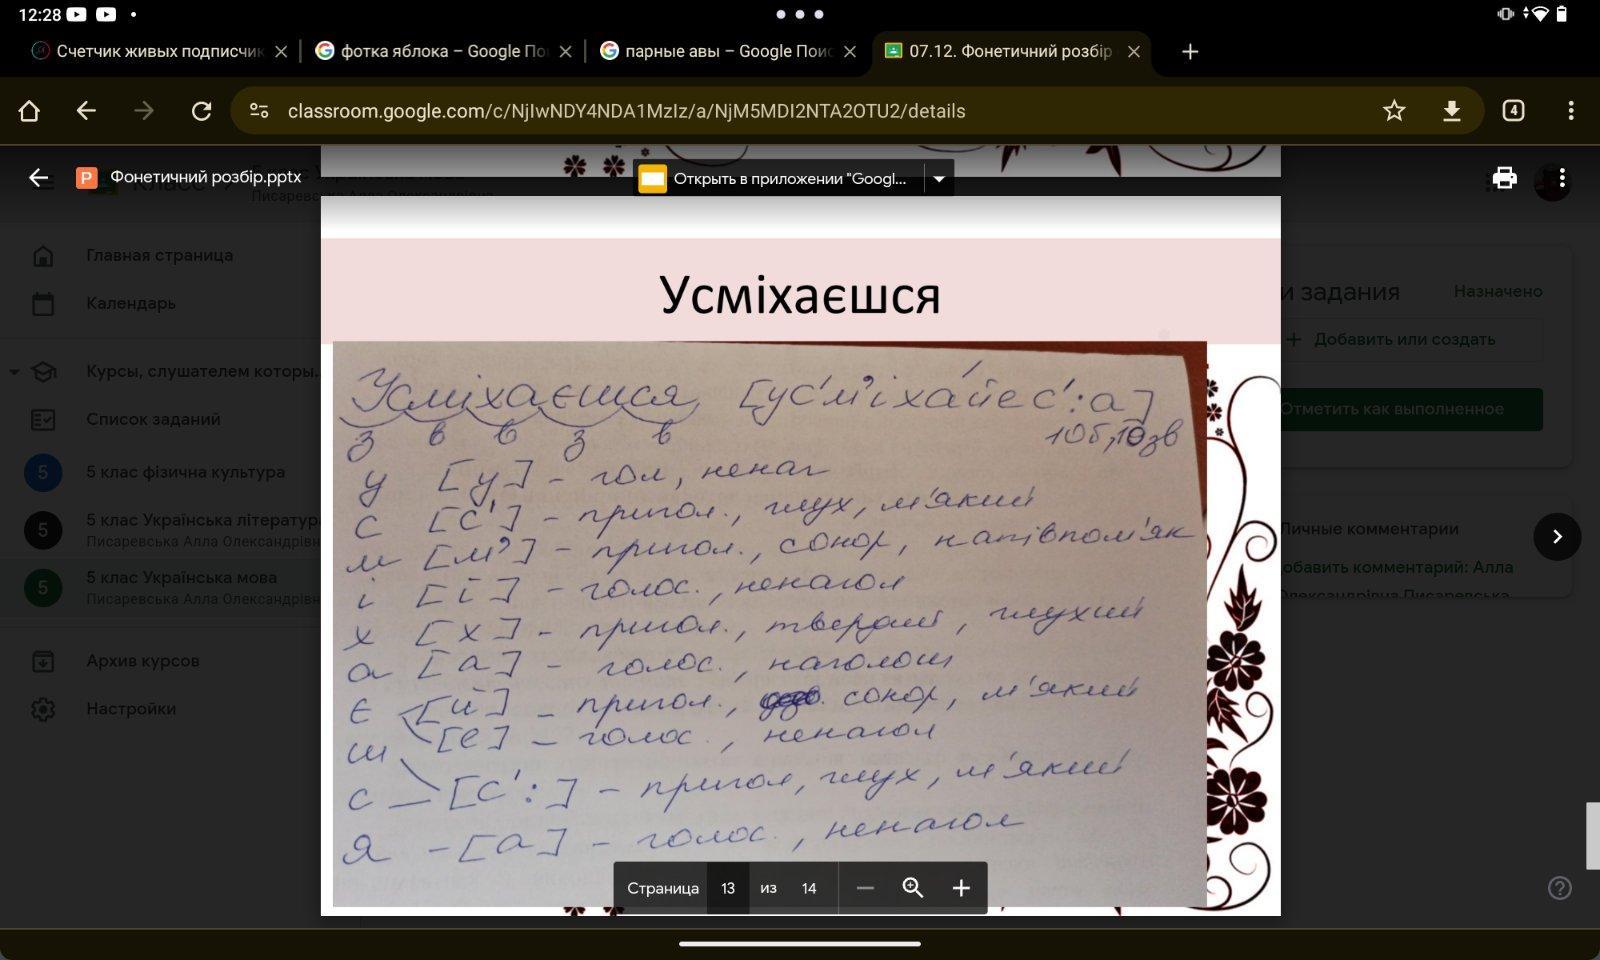 12:28
Счетчик живых подписчик
фотка яблока – Google По
парные авы – Google Поис
07.12. Фонетичний розбір
classroom.google.com/c/NjIwNDY4NDA1MzIz/a/NjM5MDI2NTA2OTU2/details
4
Фонетичний розбір.pptx
Открыть в приложении "Googl...
Класс
Писаревська Алла Олександрівна
Главная страница
Календарь
Курсы, слушателем которы...
Список заданий
5 5 клас фізична культура
5 5 клас Українська література
Писаревська Алла Олександрівн
5 5 клас Українська мова
Писаревська Алла Олександрівн
Архив курсов
Настройки
Усміхаєшся
Усміхаєшся [ус′м’іха́йес′:а]
з в в з в 10б, 10зв
у [у] – гол, ненаг
с [с′] – пригол., глух, м'який
м [м’] – пригол., сонор, напівпом'як
і [і] – голос., ненагол
х [х] – пригол., твердий, глухий
а [а] – голос., наголош
є [й] – пригол., сонор, м'який
[е] – голос., ненагол
ш
с [с′:] – пригол, глух, м'який
я – [а] – голос., ненагол
Страница 13 из 14
и задания Назначено
+ Добавить или создать
Отметить как выполненное
Личные комментарии
обавить комментарий: Алла
Олександрівна Писаревська